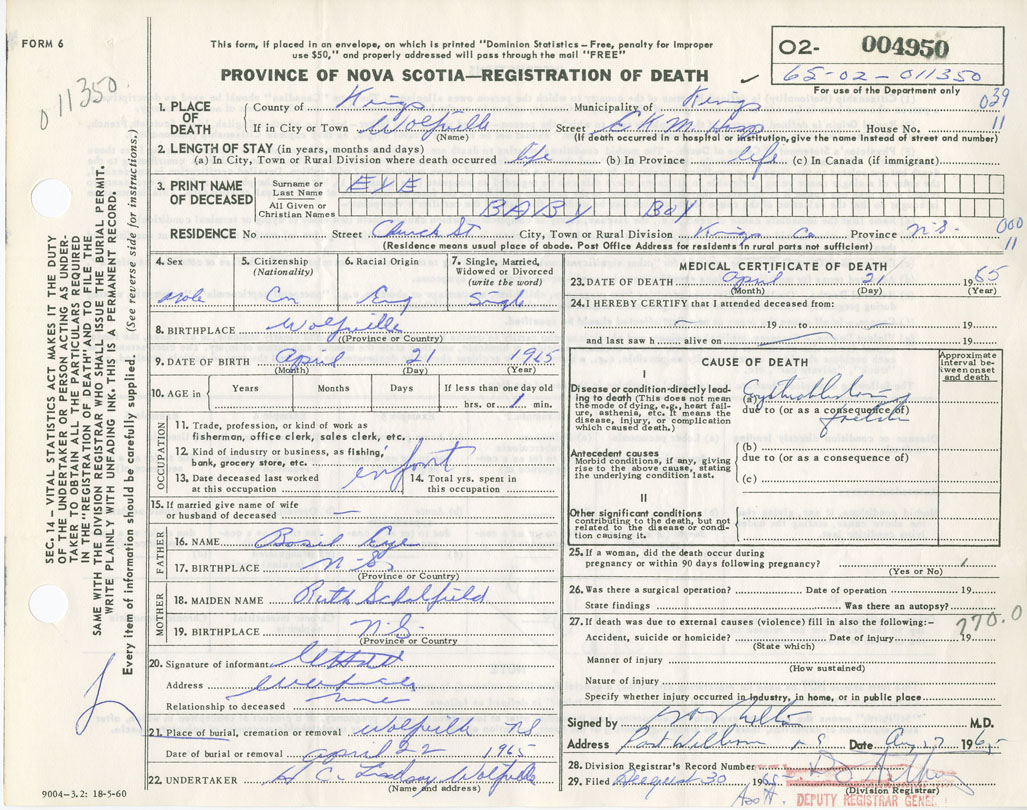 FORM 6
This form, if placed in an envelope, on which is printed "Dominion Statistics – Free, penalty for improper
use $50," and properly addressed will pass through the mail "FREE"
PROVINCE OF NOVA SCOTIA—REGISTRATION OF DEATH
02- 004950
65-02-011350
For use of the Department only
011350
SEC. 14 – VITAL STATISTICS ACT MAKES IT THE DUTY
OF THE UNDERTAKER OR PERSON ACTING AS UNDER-
TAKER TO OBTAIN ALL THE PARTICULARS REQUIRED
IN THE "REGISTRATION OF DEATH" AND TO FILE THE
SAME WITH THE DIVISION REGISTRAR WHO SHALL ISSUE THE BURIAL PERMIT.
WRITE PLAINLY WITH UNFADING INK. THIS IS A PERMANENT RECORD.
Every item of information should be carefully supplied. (See reverse side for instructions.)
1. PLACE OF DEATH
County of Kings Municipality of Kings 029
If in City or Town Wolfville Street E K M Hosp House No. 11
(Name) (If death occurred in a hospital or institution, give the name instead of street and number)
2. LENGTH OF STAY (in years, months and days)
(a) In City, Town or Rural Division where death occurred life (b) In Province life (c) In Canada (if immigrant)
3. PRINT NAME OF DECEASED
Surname or Last Name EYE
All Given or Christian Names BABY BOY
RESIDENCE No Street Church St City, Town or Rural Division Kings Co Province N.S. 000
11
(Residence means usual place of abode. Post Office Address for residents in rural parts not sufficient)
4. Sex male
5. Citizenship (Nationality) Cn
6. Racial Origin Eng
7. Single, Married, Widowed or Divorced (write the word) Single
8. BIRTHPLACE Wolfville
(Province or Country)
9. DATE OF BIRTH April 21 1965
(Month) (Day) (Year)
10. AGE in Years Months Days If less than one day old
hrs. or 1 min.
OCCUPATION
11. Trade, profession, or kind of work as
fisherman, office clerk, sales clerk, etc.
12. Kind of industry or business, as fishing,
bank, grocery store, etc. infant
13. Date deceased last worked at this occupation
14. Total yrs. spent in this occupation
15. If married give name of wife
or husband of deceased —
FATHER
16. NAME Basil Eye
17. BIRTHPLACE N S.
(Province or Country)
MOTHER
18. MAIDEN NAME Ruth Schalfield
19. BIRTHPLACE N.S.
(Province or Country)
20. Signature of informant
Address
Relationship to deceased
21. Place of burial, cremation or removal Wolfville NS
Date of burial or removal April 22 1965
22. UNDERTAKER H C. Lindsay Wolfville
(Name and address)
9004-3.2: 18-5-60
MEDICAL CERTIFICATE OF DEATH
23. DATE OF DEATH April 21 1965
(Month) (Day) (Year)
24. I HEREBY CERTIFY that I attended deceased from:
19 to 19
and last saw h alive on 19
CAUSE OF DEATH
Approximate interval between onset and death
I
Disease or condition directly lead-
ing to death (This does not mean
the mode of dying, e.g., heart fail-
ure, asthenia, etc. It means the
disease, injury, or complication
which caused death.)
(a) Erythroblastosis
due to (or as a consequence of)
foetalis
Antecedent causes
Morbid conditions, if any, giving
rise to the above cause, stating
the underlying condition last.
(b)
due to (or as a consequence of)
(c)
II
Other significant conditions
contributing to the death, but not
related to the disease or condi-
tion causing it.
25. If a woman, did the death occur during
pregnancy or within 90 days following pregnancy?
(Yes or No)
26. Was there a surgical operation? Date of operation 19
State findings Was there an autopsy?
27. If death was due to external causes (violence) fill in also the following:-
770.0
Accident, suicide or homicide? Date of injury 19
(State which)
Manner of injury
(How sustained)
Nature of injury
Specify whether injury occurred in industry, in home, or in public place
Signed by M.D.
Address Port Williams N.S. Date Aug 27 1965
28. Division Registrar's Record Number
29. Filed August 30 1965
(Division Registrar)
DEPUTY REGISTRAR GENERAL